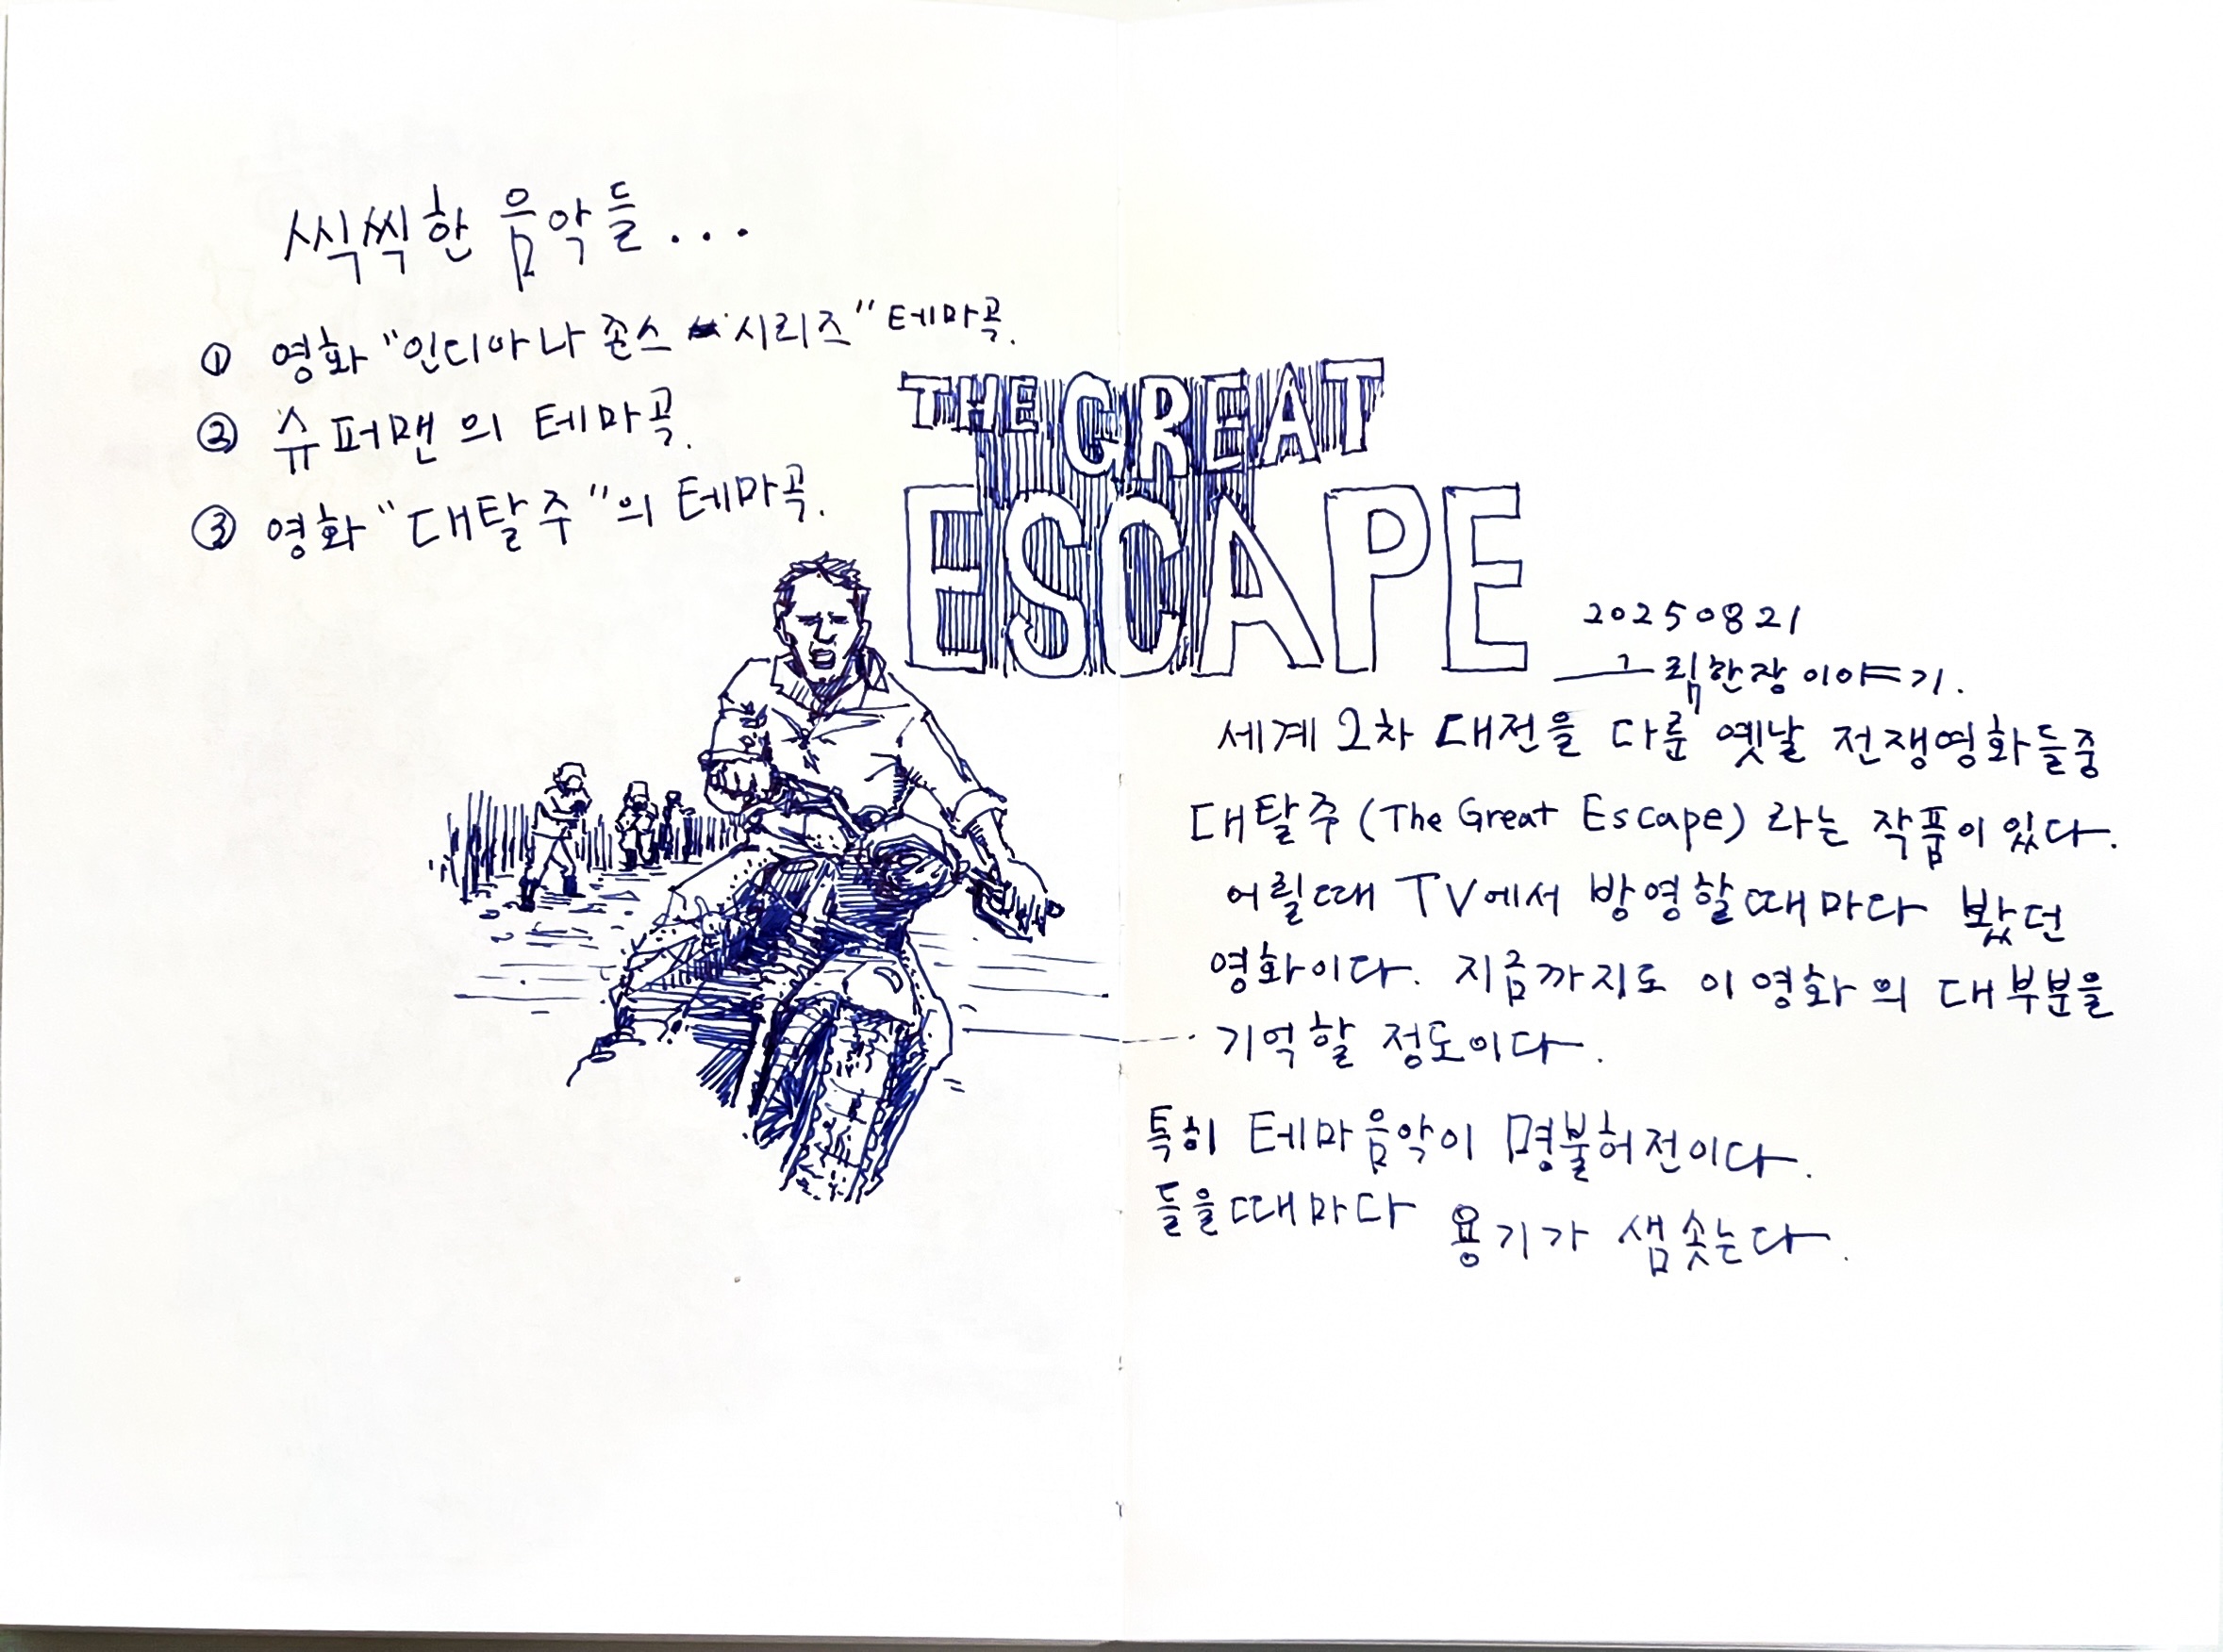 씩씩한 음악들...
① 영화 "인디아나 존스 시리즈" 테마곡.
② 슈퍼맨의 테마곡.
③ 영화 "대탈주"의 테마곡.
THE GREAT
ESCAPE
20250821
그림한장이야기.
세계 2차 대전을 다룬 옛날 전쟁영화들중
대탈주 (The Great Escape) 라는 작품이 있다.
어릴때 TV에서 방영할때마다 봤던
영화이다. 지금까지도 이 영화의 대부분을
기억할 정도이다.
특히 테마음악이 명불허전이다.
들을때마다 용기가 샘솟는다.